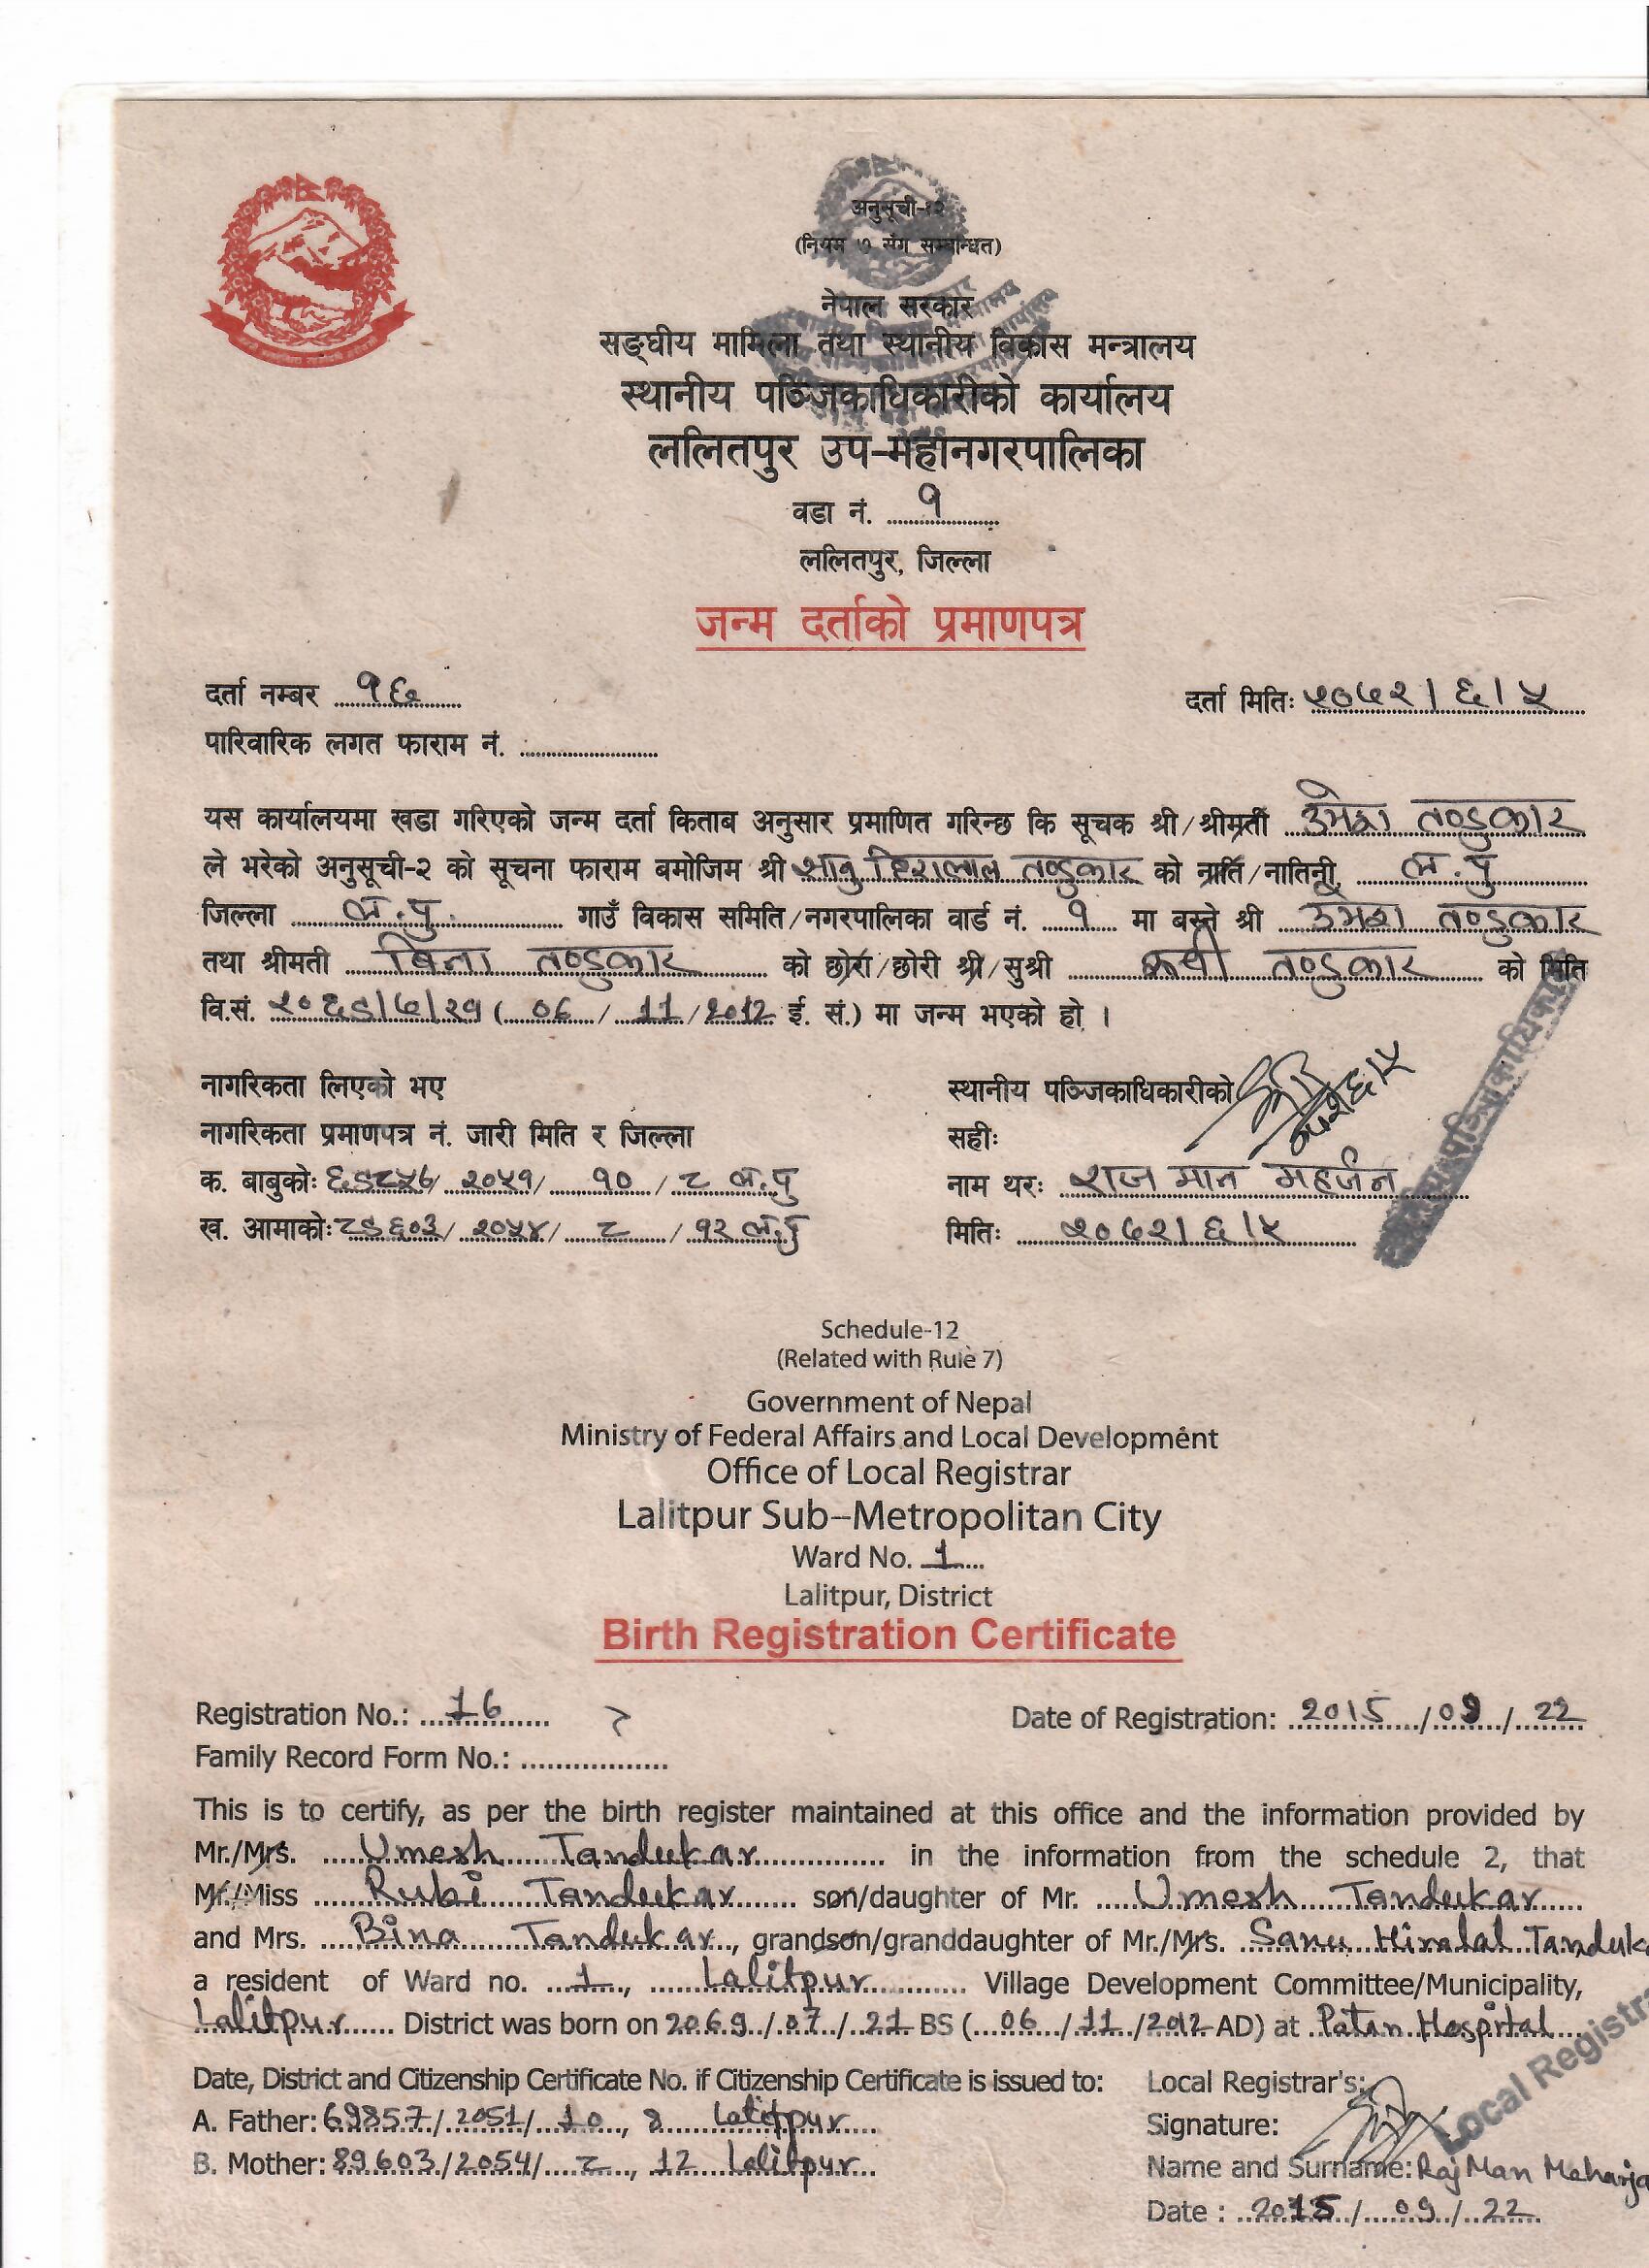 अनुसूची-१२
(नियम ७ संग सम्बन्धित)
नेपाल सरकार
सङ्घीय मामिला तथा स्थानीय विकास मन्त्रालय
स्थानीय पञ्जिकाधिकारीको कार्यालय
ललितपुर उप-महानगरपालिका
वडा नं. १
ललितपुर, जिल्ला
जन्म दर्ताको प्रमाणपत्र
दर्ता नम्बर १६ दर्ता मितिः २०७२।६।५
पारिवारिक लगत फाराम नं.
यस कार्यालयमा खडा गरिएको जन्म दर्ता किताब अनुसार प्रमाणित गरिन्छ कि सूचक श्री/श्रीमती उमेश तण्डुकार
ले भरेको अनुसूची-२ को सूचना फाराम बमोजिम श्री सानु हिरालाल तण्डुकार को नाति/नातिनी, ल.पु
जिल्ला ल.पु. गाउँ विकास समिति/नगरपालिका वार्ड नं. १ मा बस्ने श्री उमेश तण्डुकार
तथा श्रीमती बिना तण्डुकार को छोरा/छोरी श्री/सुश्री रूबी तण्डुकार को मिति
वि.सं. २०६९/७/२१ ( 06 / 11 / 2012 ई. सं.) मा जन्म भएको हो ।
नागरिकता लिएको भए स्थानीय पञ्जिकाधिकारीको
नागरिकता प्रमाणपत्र नं. जारी मिति र जिल्ला सहीः
क. बाबुकोः ६९८५७/ २०५१/ १० / ८ ल.पु नाम थरः राज मान महर्जन
ख. आमाकोः ८९६०३/ २०५४/ ८ / १२ ल.पु मितिः २०७२।६।५
Schedule-12
(Related with Rule 7)
Government of Nepal
Ministry of Federal Affairs and Local Development
Office of Local Registrar
Lalitpur Sub-Metropolitan City
Ward No. 1
Lalitpur, District
Birth Registration Certificate
Registration No.: 16 Date of Registration: 2015/09/22
Family Record Form No.:
This is to certify, as per the birth register maintained at this office and the information provided by
Mr./Mrs. Umesh Tandukar in the information from the schedule 2, that
Mr./Miss Rubi Tandukar son/daughter of Mr. Umesh Tandukar
and Mrs. Bina Tandukar, grandson/granddaughter of Mr./Mrs. Sanu Hiralal Tanduk
a resident of Ward no. 1, Lalitpur Village Development Committee/Municipality,
Lalitpur District was born on 2069/07/21 BS (06/11/2012 AD) at Patan Hospital
Date, District and Citizenship Certificate No. if Citizenship Certificate is issued to: Local Registrar's:
A. Father: 69857/2051/10, 8 Lalitpur Signature:
B. Mother: 89603/2054/८, 12 Lalitpur Name and Surname: Raj Man Maharja
Date : 2015/09/22
Local Registra